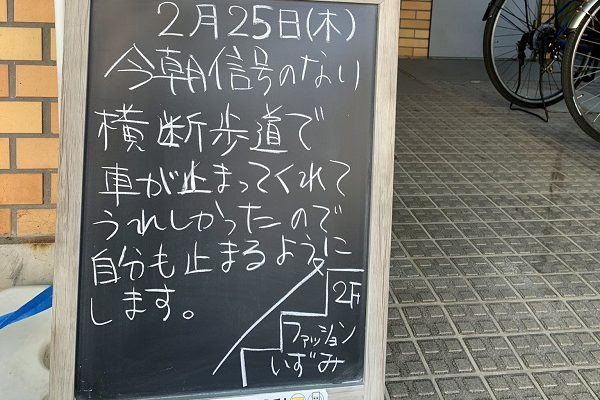 2月25日(木)
今朝信号のない
横断歩道で
車が止まってくれて
うれしかったので
自分も止まるように
します。
2F
ファッション
いずみ